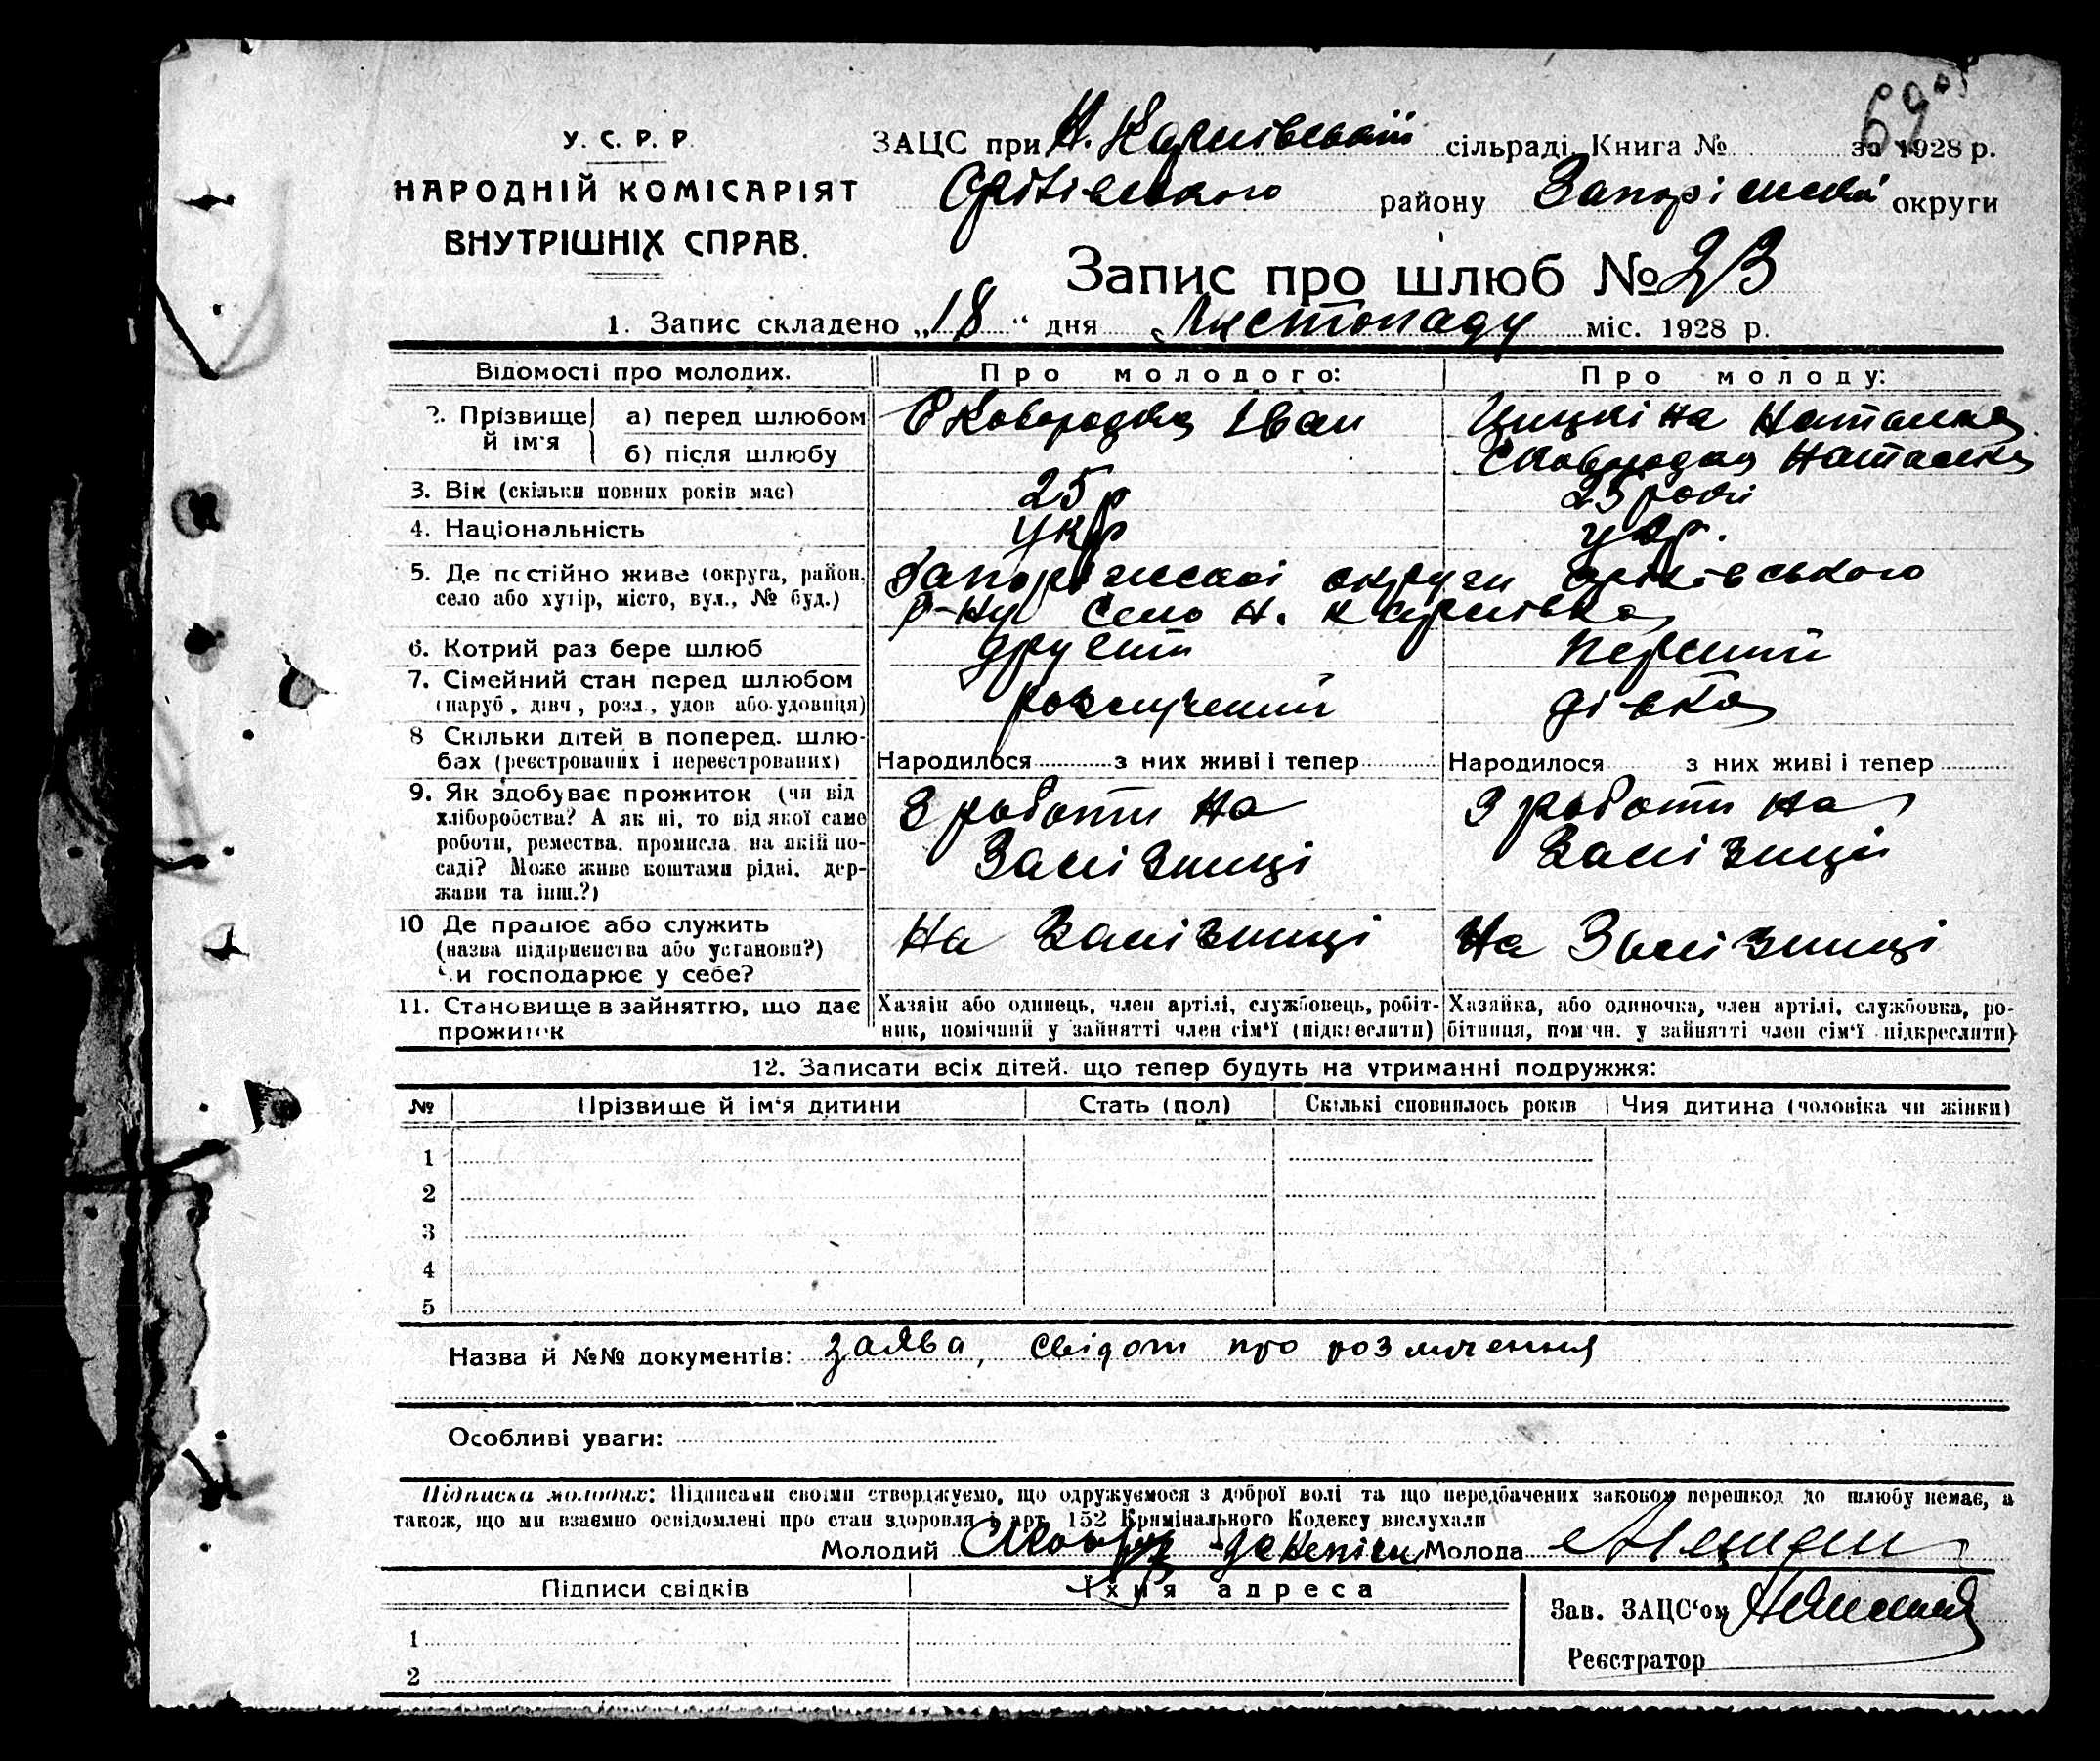 69
У. С. Р. Р.
НАРОДНІЙ КОМІСАРІЯТ
ВНУТРІШНІХ СПРАВ.
ЗАЦС при Н. Карлівській сільраді. Книга № за 1928 р.
району Запоріжської округи
Запис про шлюб № 23
1. Запис складено „18" дня Листопаду міс. 1928 р.
Відомості про молодих. Про молодого: Про молоду:
2. Прізвище й ім'я а) перед шлюбом Іван Наталка
б) після шлюбу Наталка
3. Вік (скільки повних років має) 25 р 25 років
4. Національність Укр укр.
5. Де постійно живе (округа, район, Запоріжської округи Оріхівського
село або хутір, місто, вул., № буд.) р-ну село Н. Карлівка
6. Котрий раз бере шлюб другий перший
7. Сімейний стан перед шлюбом розлучений дівка
(паруб., дівч., розл., удов. або удовиця)
8 Скільки дітей в поперед. шлю-
бах (реєстрованих і нереєстрованих) Народилося з них живі і тепер Народилося з них живі і тепер
9. Як здобуває прожиток (чи від З роботи на З роботи на
хліборобства? А як ні, то від якої само
роботи, ремества, промисла, на якій по- Залізниці Залізниці
саді? Може живе коштами рідні, дер-
жави та інш.?)
10 Де працює або служить На Залізниці На Залізниці
(назва підприємства або установи?)
Чи господарює у себе?
11. Становище в зайняттю, що дає Хазяін або одинець, член артілі, службовець, робіт- Хазяйка, або одиночка, член артілі, службовка, ро-
прожиток ник, помічний у зайнятті член сім'ї (підкреслити) бітниця, помічн. у зайнятті член сім'ї підкреслити)
12. Записати всіх дітей, що тепер будуть на утриманні подружжя:
№ Прізвище й ім'я дитини Стать (пол) Скількі сповнилось років Чия дитина (чоловіка чи жінки)
1
2
3
4
5
Назва й №№ документів: заява, свідот про розлучення
Особливі уваги:
Підписка молодих: Підписами своіми стверджуємо, що одружуємося з доброї волі та що передбачених законом перешкод до шлюбу немає, а
також, що ми взаємно освідомлені про стан здоровля і арт. 152 Кримінального Кодексу вислухали
Молодий Молода
Підписи свідків Їхня адреса
Зав. ЗАЦС'ом
1
Реєстратор
2